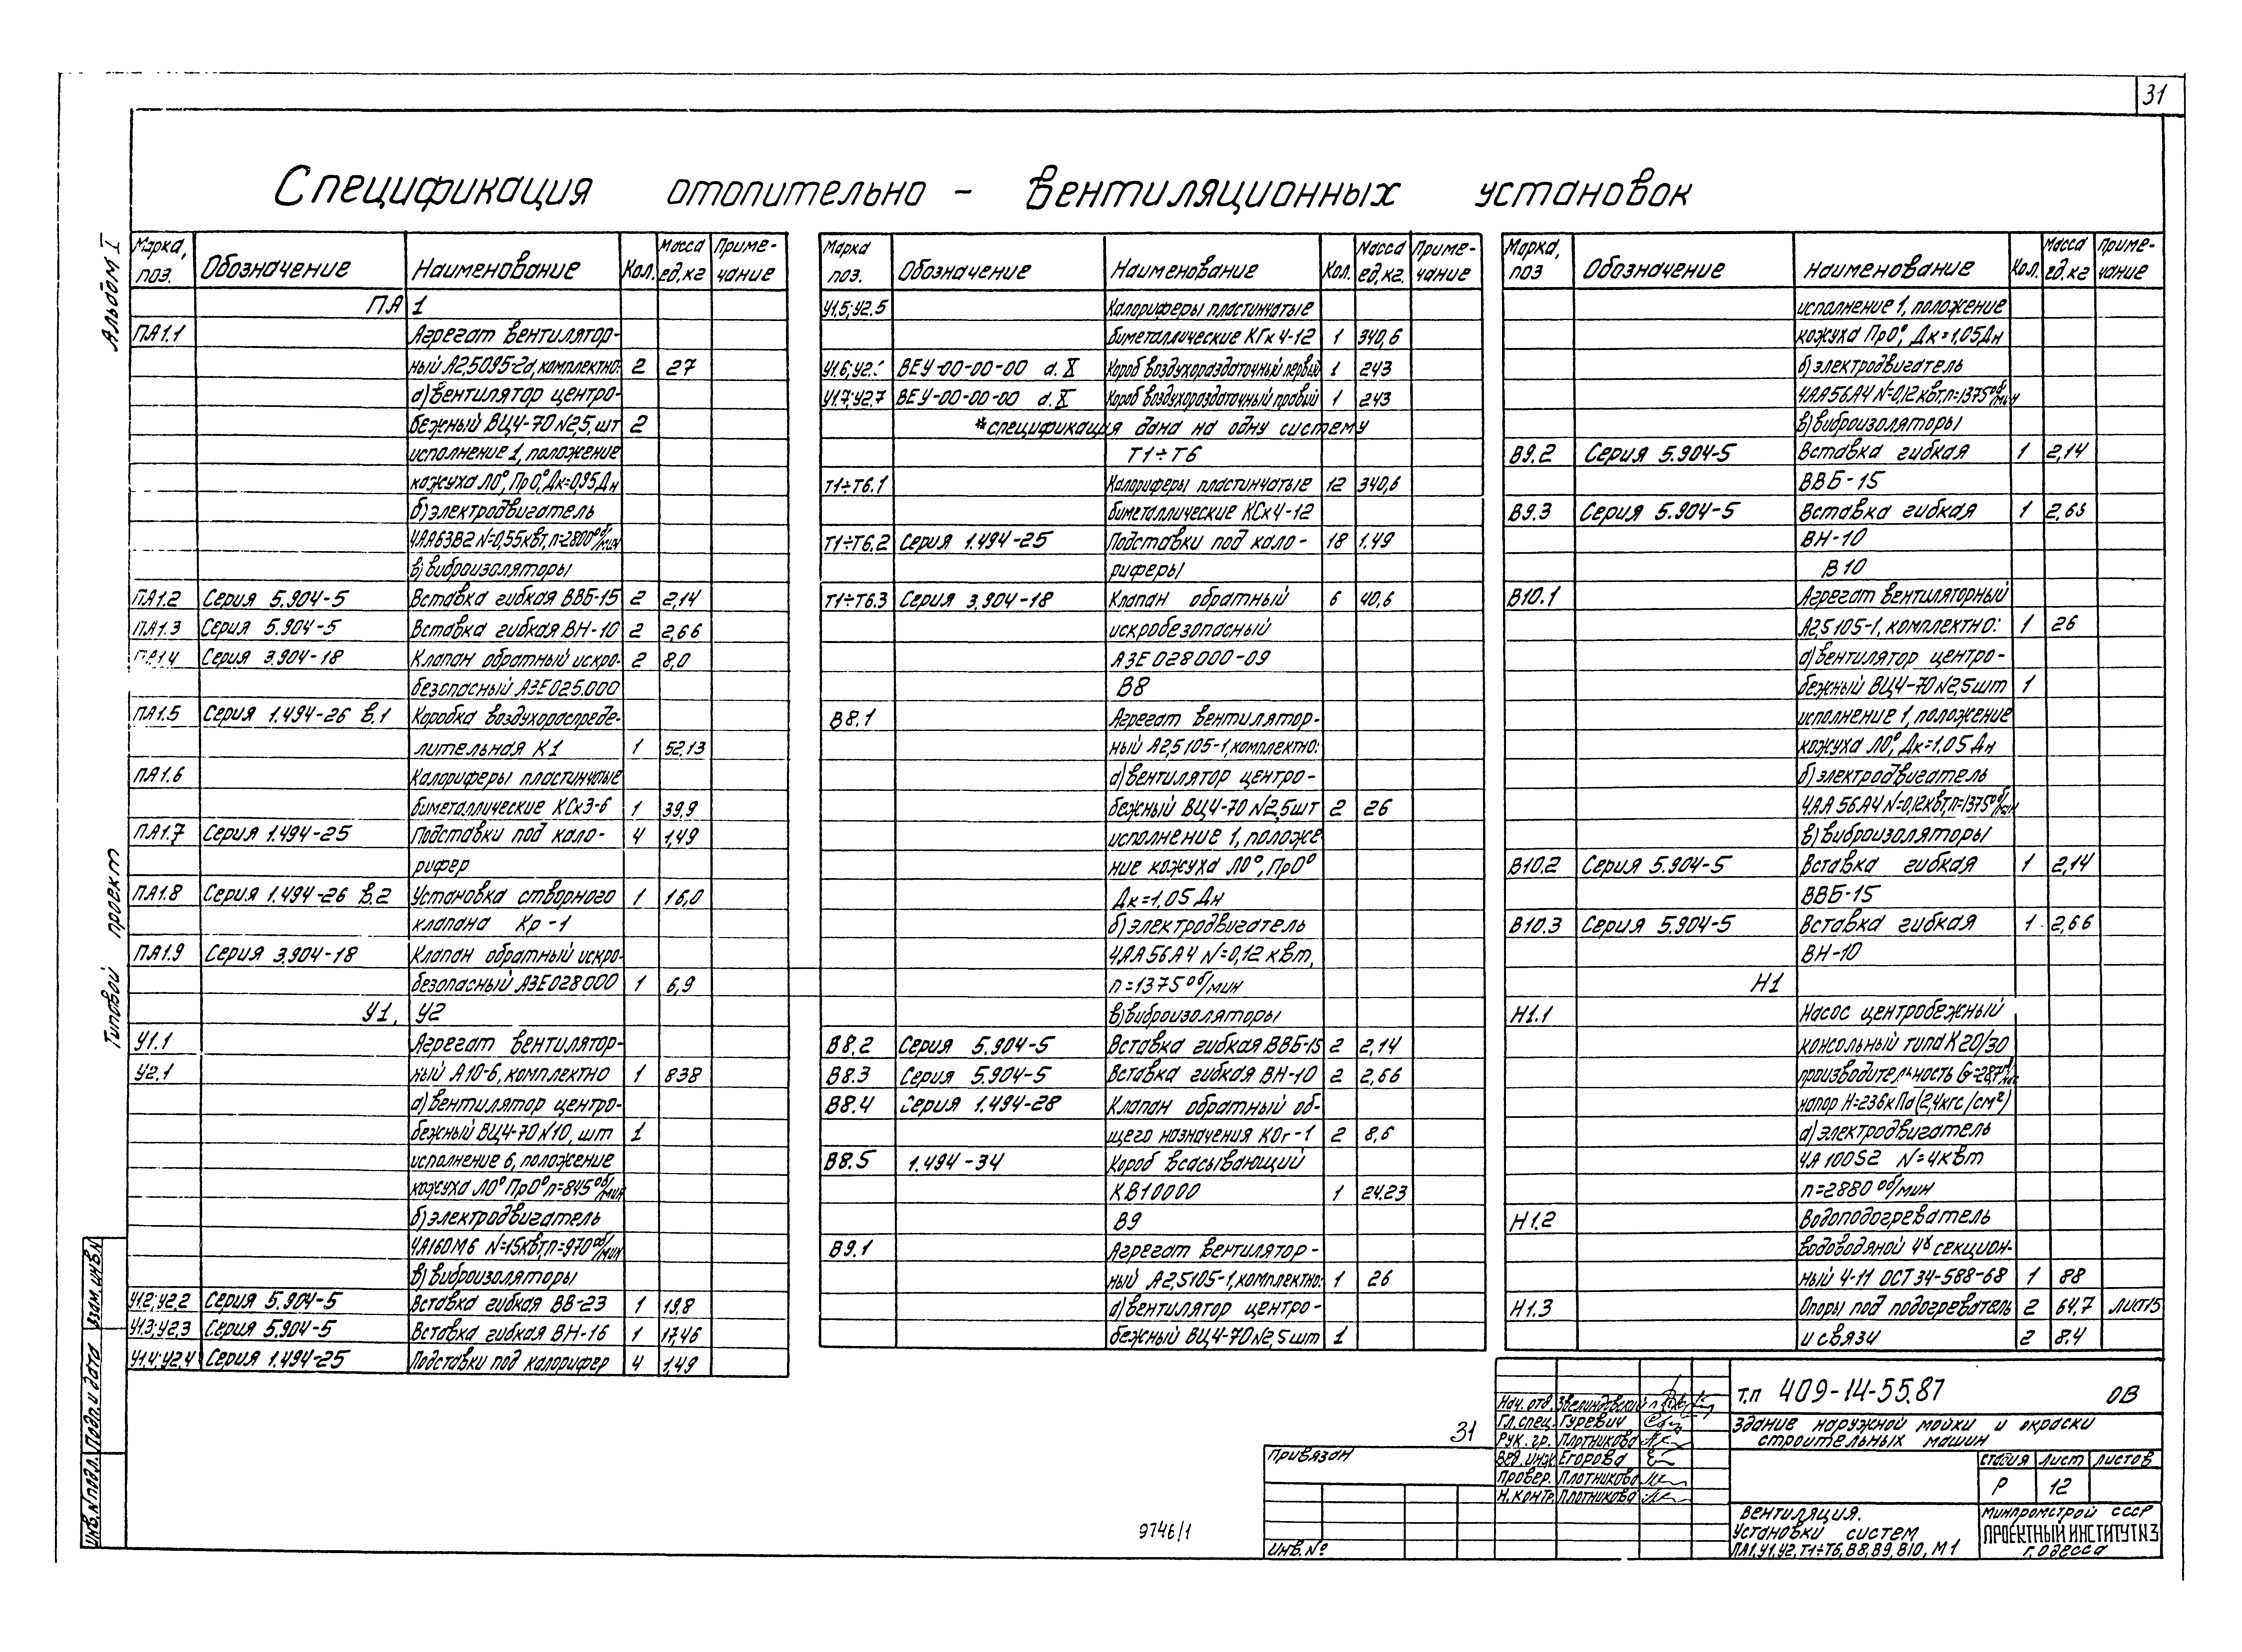 31
Спецификация отопительно - вентиляционных установок
Альбом I
Типовой проект
Марка, поз. Обозначение Наименование Кол. Масса ед,кг Приме- чание
ПА 1
ПА1.1 Агрегат вентилятор-
ный А2,5095-2а, комплектно: 2 27
а) вентилятор центро-
бежный ВЦ4-70 N2,5, шт 2
исполнение 1, положение
кожуха Л0°, Пр0°, Дк=0,95Дн
б) электродвигатель
4АА63В2 N=0,55кВт, n=2800 об/мин
в) виброизоляторы
ПА1.2 Серия 5.904-5 Вставка гибкая ВВБ-15 2 2,14
ПА1.3 Серия 5.904-5 Вставка гибкая ВН-10 2 2,66
ПА1.4 Серия 3.904-18 Клапан обратный искро- 2 8,0
безопасный АЗЕ025.000
ПА1.5 Серия 1.494-26 в.1 Коробка воздухораспреде-
лительная К1 1 52,13
ПА1.6 Калориферы пластинчатые
биметаллические КСк3-6 1 39,9
ПА1.7 Серия 1.494-25 Подставки под кало- 4 1,49
рифер
ПА1.8 Серия 1.494-26 в.2 Установка створного 1 16,0
клапана Кр-1
ПА1.9 Серия 3.904-18 Клапан обратный искро-
безопасный АЗЕ028000 1 6,9
У1, У2
У1.1 Агрегат вентилятор-
У2.1 ный А10-6, комплектно 1 838
а) вентилятор центро-
бежный ВЦ4-70 N10, шт 1
исполнение 6, положение
кожуха Л0° Пр0° n=845 об/мин
б) электродвигатель
4А160М6 N=15кВт, n=970 об/мин
в) виброизоляторы
У1.2; У2.2 Серия 5.904-5 Вставка гибкая ВВ-23 1 19,8
У1.3; У2.3 Серия 5.904-5 Вставка гибкая ВН-16 1 17,46
У1.4; У2.4 Серия 1.494-25 Подставки под калорифер 4 1,49
Марка поз. Обозначение Наименование Кол. Масса ед,кг. Приме- чание
У1.5; У2.5 Калориферы пластинчатые
биметаллические КГк 4-12 1 340,6
У1.6; У2. ВЕУ-00-00-00 а. X Короб воздухораздаточный левый 1 243
У1.7; У2.7 ВЕУ-00-00-00 а. X Короб воздухораздаточный правый 1 243
*спецификация дана на одну систему
Т1÷Т6
Т1÷Т6.1 Калориферы пластинчатые 12 340,6
биметаллические КСк4-12
Т1÷Т6.2 Серия 1.494-25 Подставки под кало- 18 1.49
риферы
Т1÷Т6.3 Серия 3.904-18 Клапан обратный 6 40,6
искробезопасный
АЗЕ 028000-09
В8
В8.1 Агрегат вентилятор-
ный А2,5105-1, комплектно:
а) вентилятор центро-
бежный ВЦ4-70 N2,5шт 2 26
исполнение 1, положе
ние кожуха Л0°, Пр0°
Дк=1,05 Дн
б) электродвигатель
4АА56А4 N=0,12 кВт,
n=1375 об/мин
в) виброизоляторы
В8.2 Серия 5.904-5 Вставка гибкая ВВБ-15 2 2,14
В8.3 Серия 5.904-5 Вставка гибкая ВН-10 2 2,66
В8.4 Серия 1.494-28 Клапан обратный об-
щего назначения КОг-1 2 8,6
В8.5 1.494-34 Короб всасывающий
КВ10000 1 24.23
В9
В9.1 Агрегат вентилятор-
ный А2,5105-1, комплектно: 1 26
а) вентилятор центро-
бежный ВЦ4-70 N2,5 шт 1
Марка, поз Обозначение Наименование Кол. Масса ед,кг Приме- чание
исполнение 1, положение
кожуха Пр0°, Дк=1,05Дн
б) электродвигатель
4АА56А4 N=0,12 кВт, n=1375 об/мин
в) виброизоляторы
В9.2 Серия 5.904-5 Вставка гибкая 1 2,14
ВВБ-15
В9.3 Серия 5.904-5 Вставка гибкая 1 2,66
ВН-10
В10
В10.1 Агрегат вентиляторный
А2,5105-1, комплектно: 1 26
а) вентилятор центро-
бежный ВЦ4-70 N2,5шт 1
исполнение 1, положение
кожуха Л0°, Дк=1,05 Дн
б) электродвигатель
4АА56А4 N=0,12кВт, n=1375 об/мин
в) виброизоляторы
В10.2 Серия 5.904-5 Вставка гибкая 1 2,14
ВВБ-15
В10.3 Серия 5.904-5 Вставка гибкая 1 2,66
ВН-10
Н1
Н1.1 Насос центробежный
консольный типа К20/30
производительность G=28,7
напор Н=236кПа (2,4кгс/см²)
а) электродвигатель
4А100S2 N=4кВт
n=2880 об/мин
Н1.2 Водоподогреватель
водоводяной 4х секцион-
ный 4-11 ОСТ 34-588-68 1 88
Н1.3 Опоры под подогреватель 2 64,7 лист15
и связи 2 8.4
Инв.N подл. Подп. и дата Взам. инв.N
31
9746/1
Привязан
Инв.№
Нач. отд. Звелиндовский
Гл. спец. Гуревич
Рук. гр. Плотникова
Вед. инж. Егорова
Провер. Плотникова
Н. контр. Плотникова
Т.П 409-14-55.87 ОВ
Здание наружной мойки и окраски
строительных машин
Стадия Лист Листов
Р 12
Вентиляция.
Установки систем
ПА1, У1, У2, Т1÷Т6, В8, В9, В10, М1
Минпромстрой СССР
ПРОЕКТНЫЙ ИНСТИТУТ N3
г. Одесса